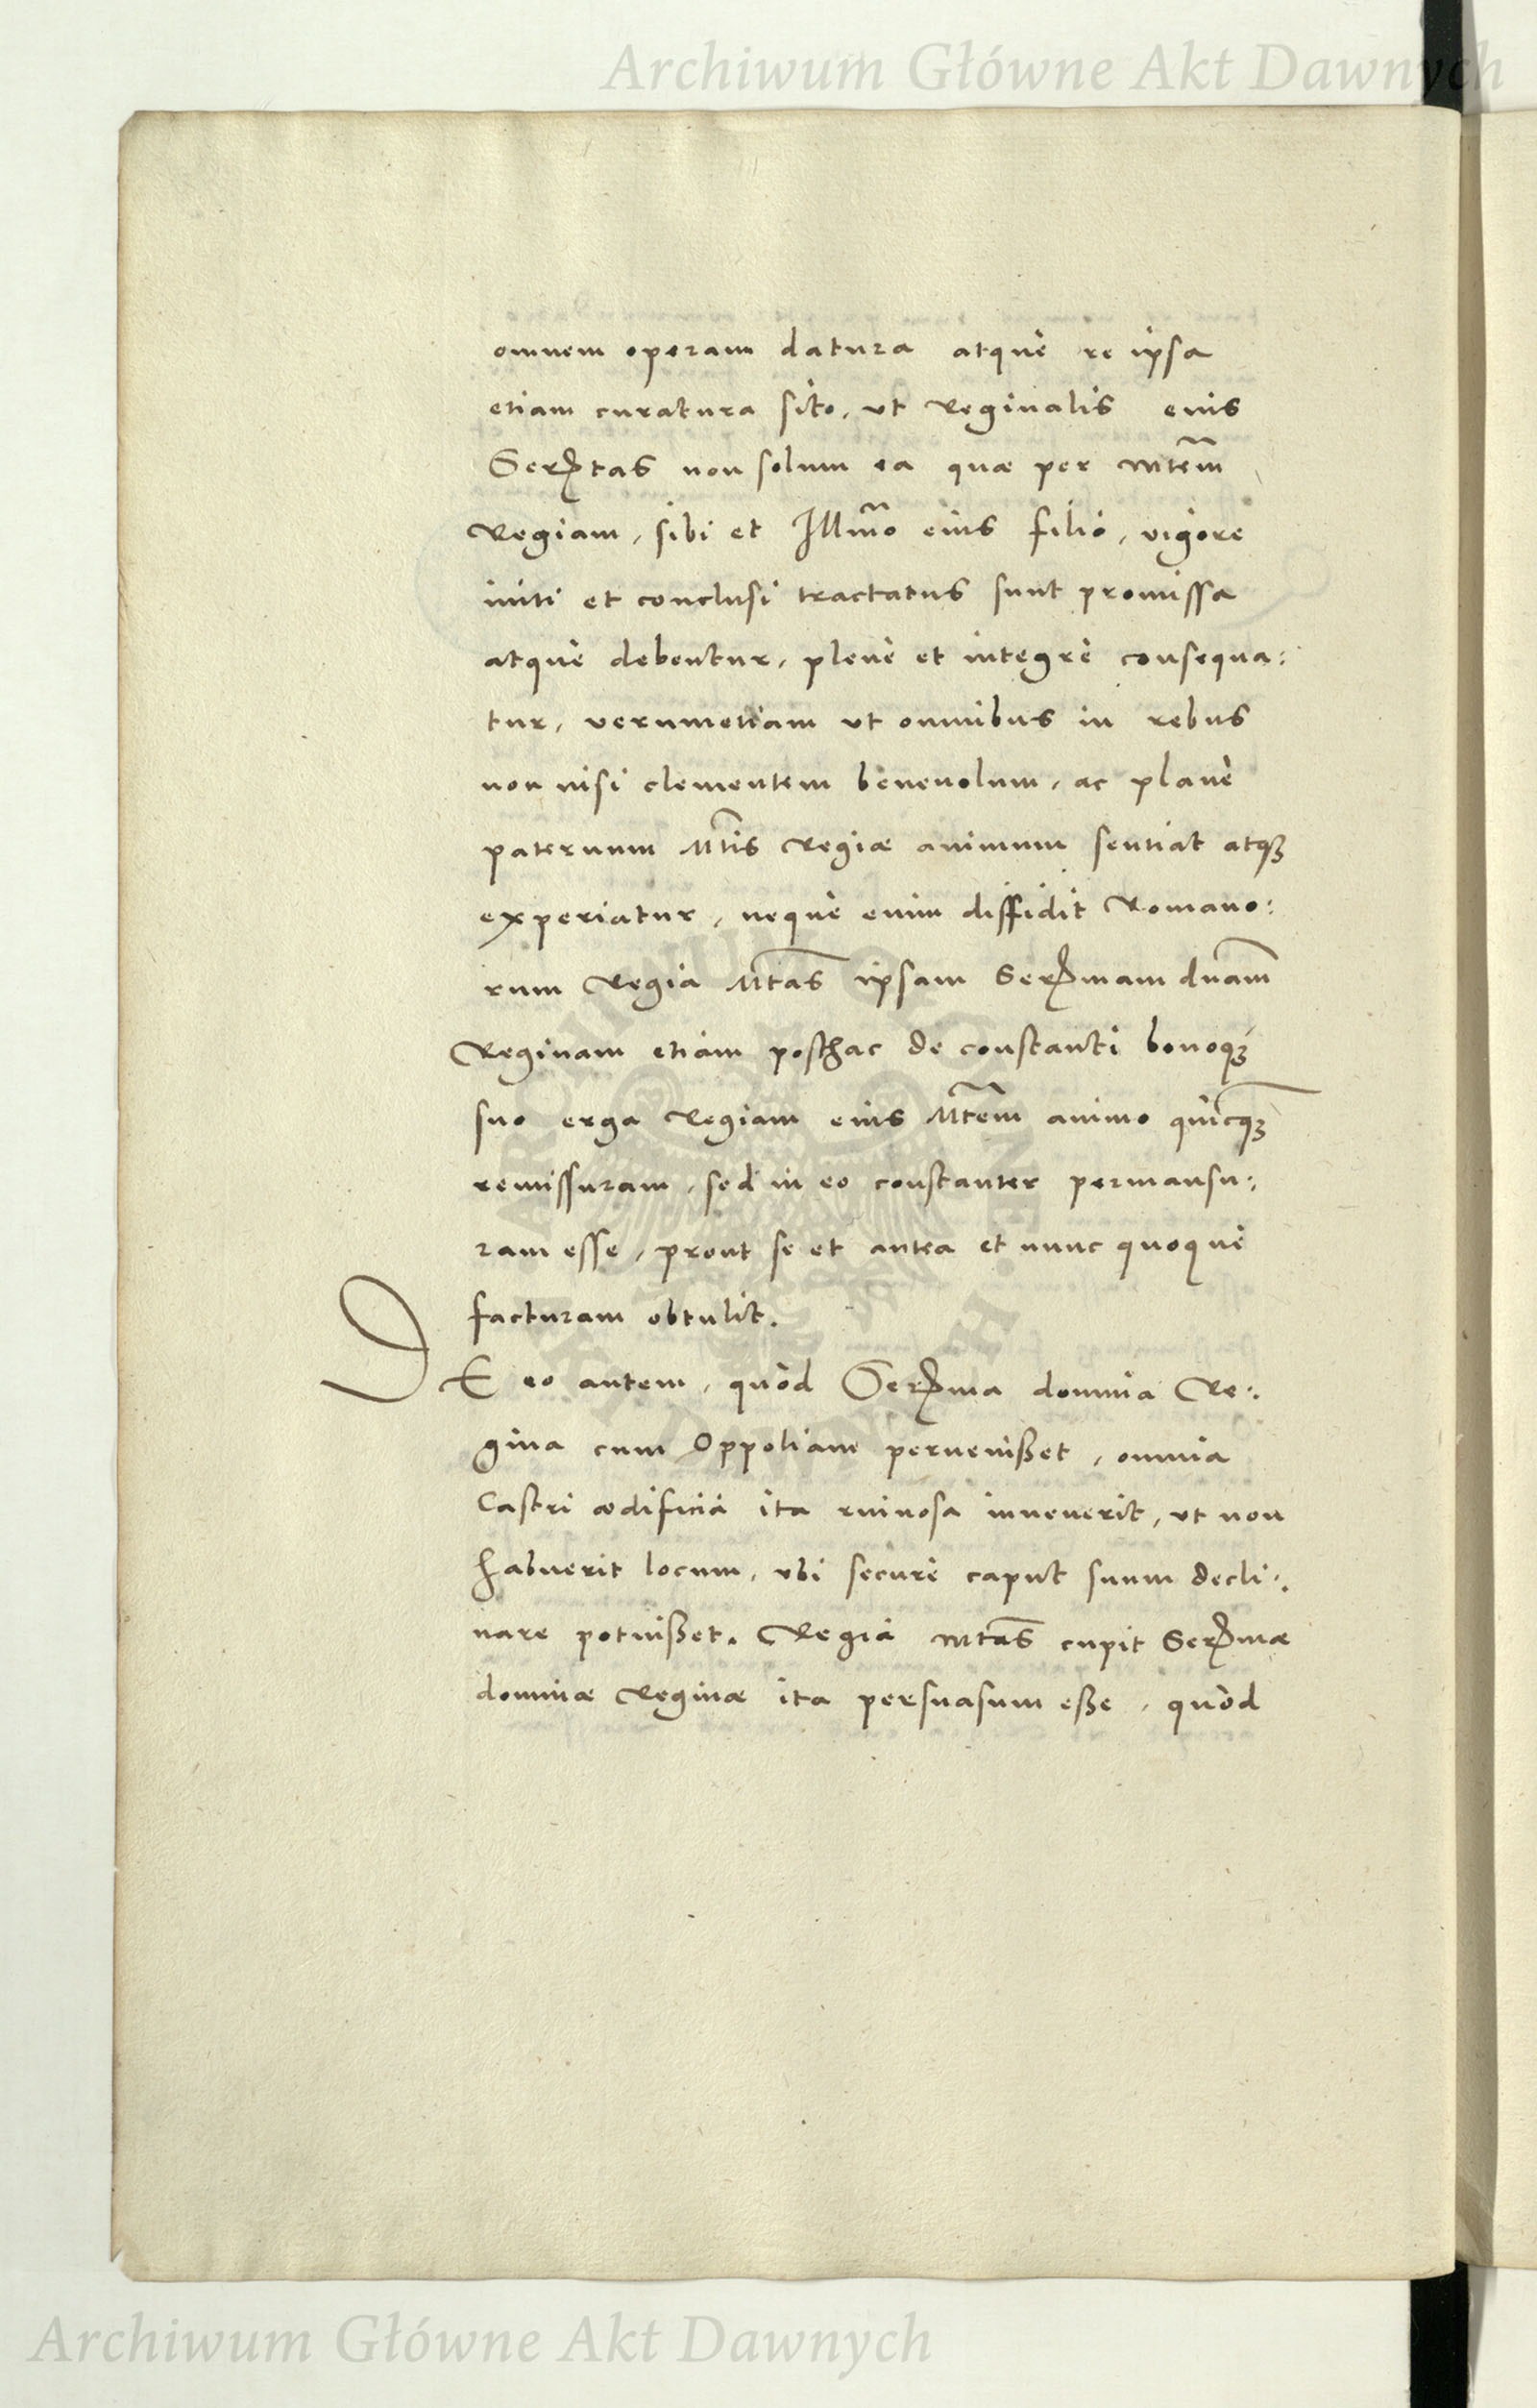 Archiwum Główne Akt Dawnych
omnem operam datura atque re ipsa
etiam curatura sit, ut Reginalis eius
Sertas non solum ea quæ per Mtem
Regiam, sibi et Illmo eius filio, vigore
initi et conclusi tractatus sunt promissa
atque debentur, plenè et integrè consequa:
tur, verumetiam ut omnibus in rebus
non nisi clementem benevolum, ac planè
paternum Mtis Regiæ animum sentiat atqȝ
experiatur, neque enim diffidit Romano:
rum Regia Mtas ipsam Sermam dnam
Reginam etiam posthac de constanti bonoqȝ
suo erga Regiam eius Mtem animo quicqȝ
remissuram, sed in eo constanter permansu:
ram esse, prout se et antea et nunc quoque
facturam obtulit.
DE eo autem, quòd Serma domina Re:
gina cum Oppoliam peruenißet, omnia
Castri ædificia ita ruinosa inuenerit, ut non
habuerit locum, ubi securè caput suum decli:
nare potuißet. Regia Mtas cupit Sermæ
dominæ Reginæ ita persuasum eße, quòd
Archiwum Główne Akt Dawnych